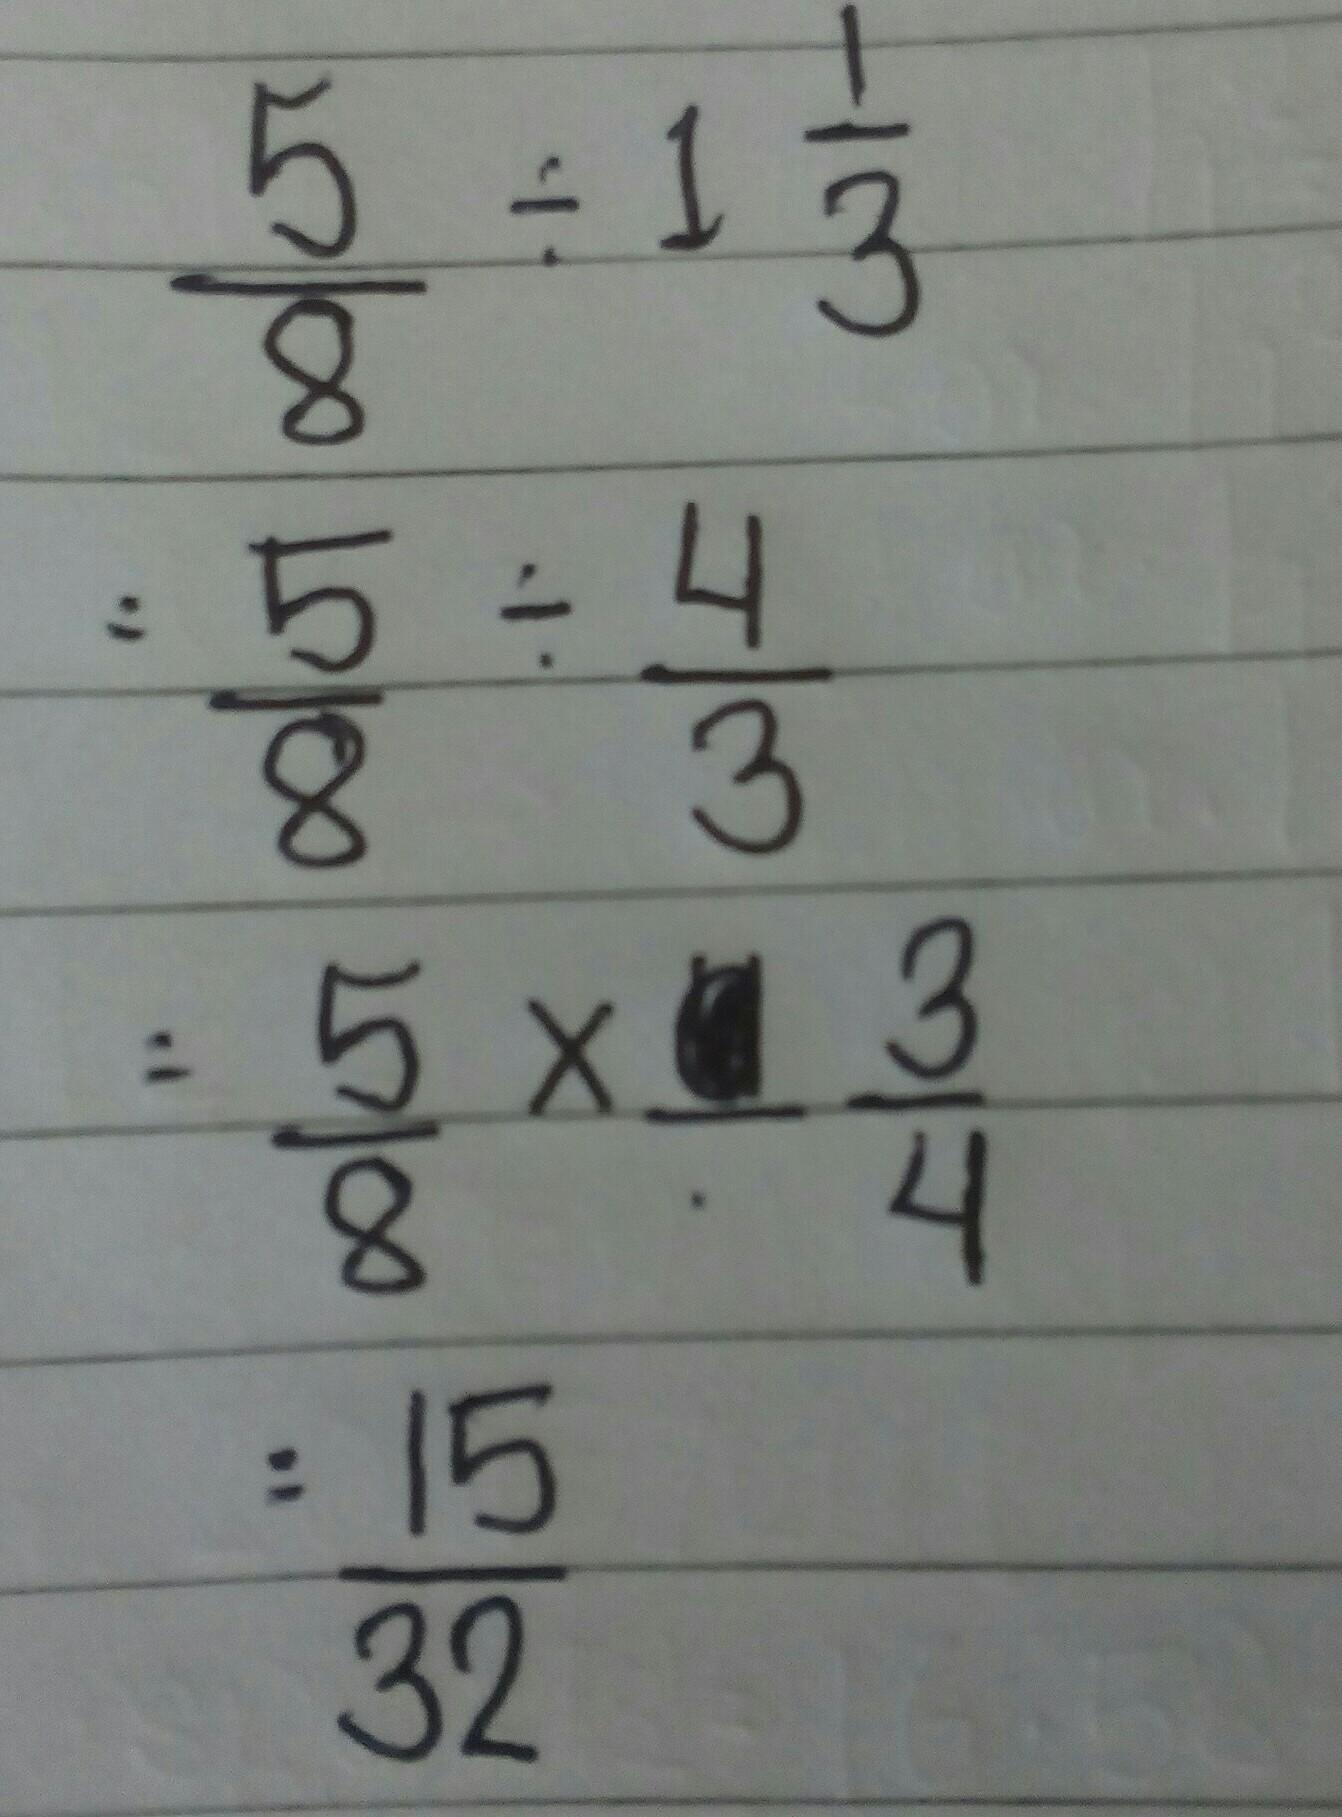 5/8 ÷ 1 1/3
= 5/8 ÷ 4/3
= 5/8 × 3/4
= 15/32